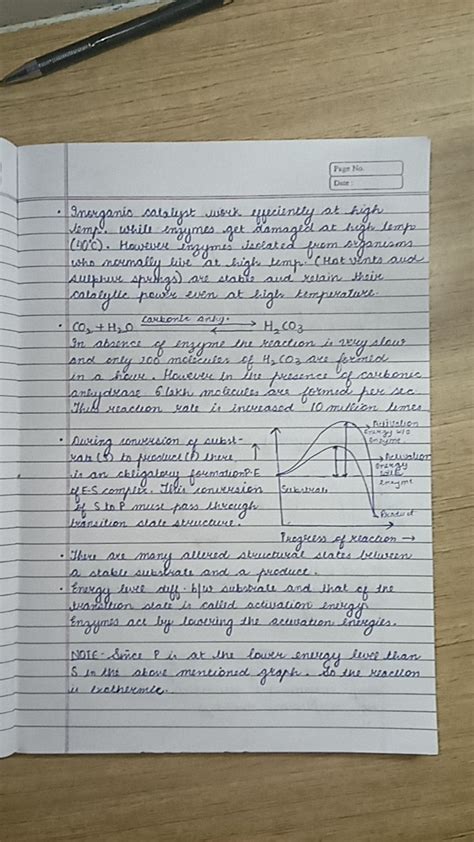 Page No.
Date :
• Inorganic catalyst work efficiently at high
temp. while enzymes get damaged at high temp
(40°C). However enzymes isolated from organisms
who normally live at high temp. (Hot vents and
sulphur springs) are stable and retain their
catalytic power even at high temperature.
• CO2 + H2O carbonic anhy. H2CO3
In absence of enzyme the reaction is very slow
and only 200 molecules of H2CO3 are formed
in a hour. However in the presence of carbonic
anhydrase 6 lakh molecules are formed per sec.
Thus reaction rate is increased 10 million times
• During conversion of subst-
rate (S) to product (P) there
is an obligatory formation
of E-S complex. This conversion
of S to P must pass through
transition state structure.
P.E
Substrate
Activation
Energy w/o
Enzyme
Activation
Energy
with
enzyme
Product
Progress of reaction →
• There are many altered structural states between
a stable substrate and a product.
• Energy level diff. b/w substrate and that of the
transition state is called activation energy.
Enzymes act by lowering the activation energies.
NOTE- Since P is at the lower energy level than
S in the above mentioned graph. So the reaction
is exothermic.